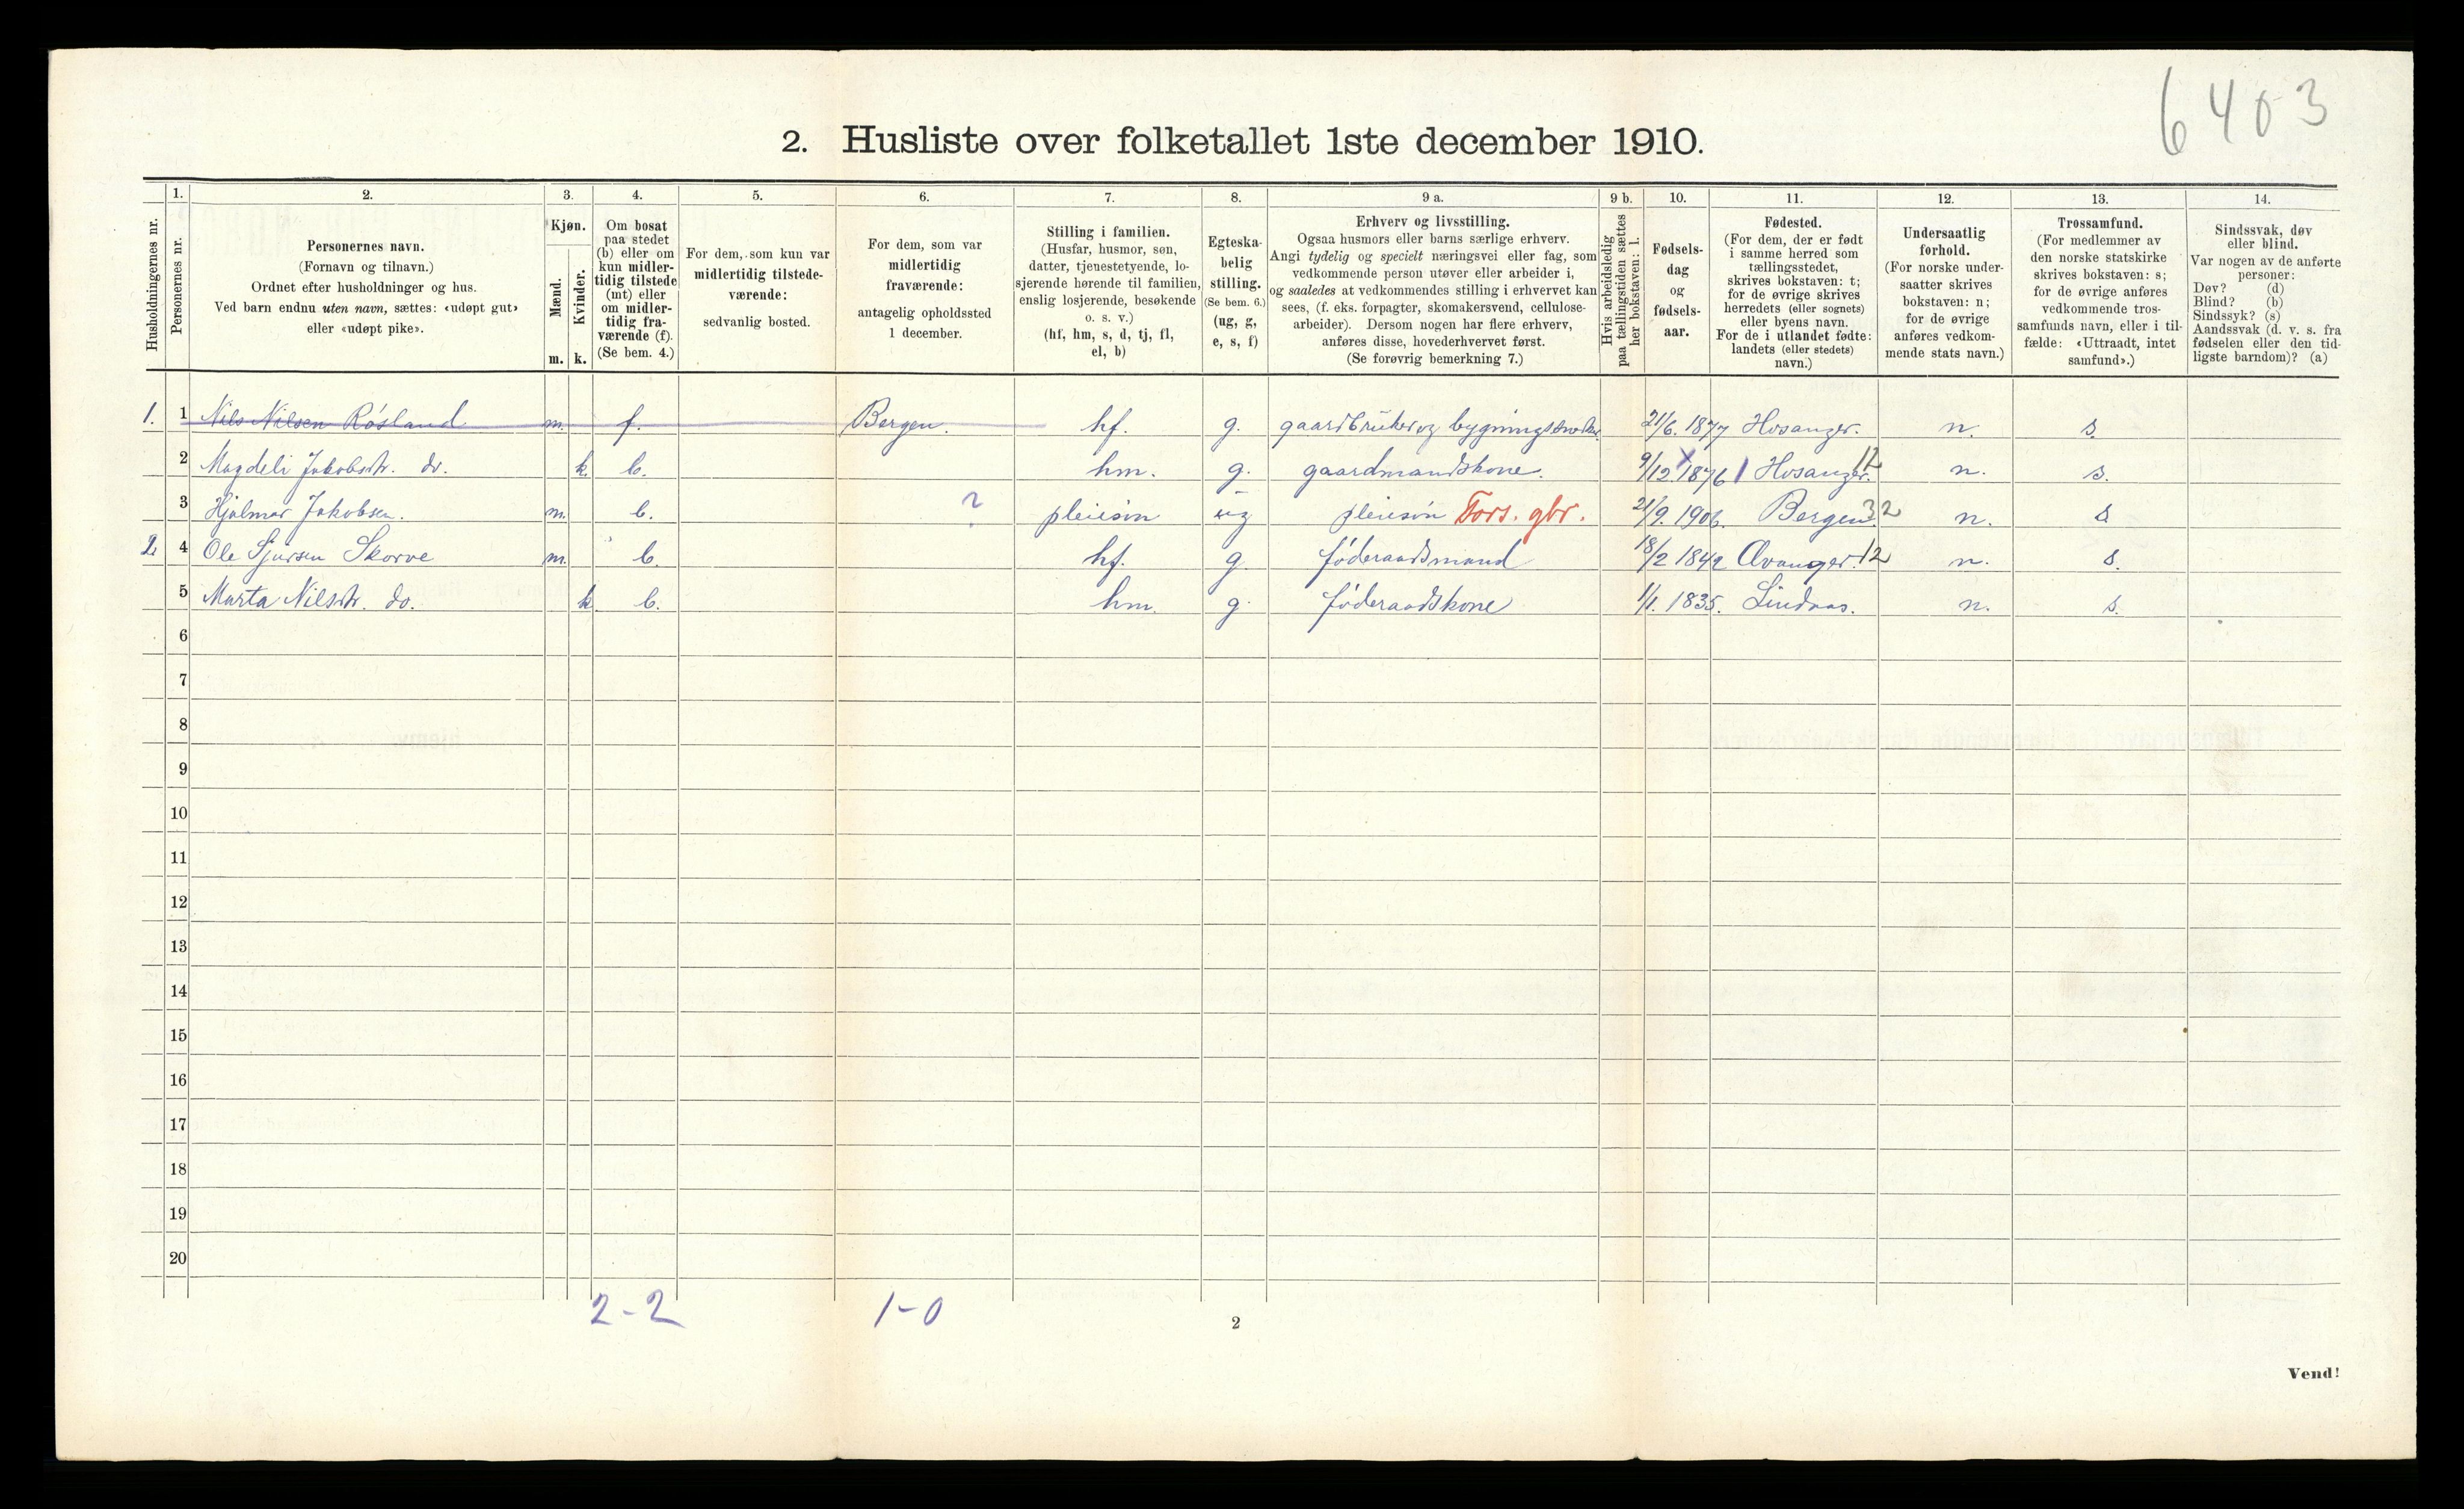 6403
2. Husliste over folketallet 1ste december 1910.
Husholdningernes nr.
1. Personernes nr.
2. Personernes navn. (Fornavn og tilnavn.) Ordnet efter husholdninger og hus. Ved barn endnu uten navn, sættes: «udøpt gut» eller «udøpt pike».
3. Kjøn. Mænd. m. Kvinder. k.
4. Om bosat paa stedet (b) eller om kun midlertidig tilstede (mt) eller om midlertidig fraværende (f). (Se bem. 4.)
5. For dem, som kun var midlertidig tilstedeværende: sedvanlig bosted.
6. For dem, som var midlertidig fraværende: antagelig opholdssted 1 december.
7. Stilling i familien. (Husfar, husmor, søn, datter, tjenestetyende, losjerende hørende til familien, enslig losjerende, besøkende o. s. v.) (hf, hm, s, d, tj, fl, el, b)
8. Egteskabelig stilling. (Se bem. 6.) (ug, g, e, s, f)
9 a. Erhverv og livsstilling. Ogsaa husmors eller barns særlige erhverv. Angi tydelig og specielt næringsvei eller fag, som vedkommende person utøver eller arbeider i, og saaledes at vedkommendes stilling i erhvervet kan sees, (f. eks. forpagter, skomakersvend, cellulosearbeider). Dersom nogen har flere erhverv, anføres disse, hovederhvervet først. (Se forøvrig bemerkning 7.)
9 b. Hvis arbeidsledig paa tællingstiden sættes her bokstaven: l.
10. Fødselsdag og fødselsaar.
11. Fødested. (For dem, der er født i samme herred som tællingsstedet, skrives bokstaven: t; for de øvrige skrives herredets (eller sognets) eller byens navn. For de i utlandet fødte: landets (eller stedets) navn.)
12. Undersaatlig forhold. (For norske undersaatter skrives bokstaven: n; for de øvrige anføres vedkommende stats navn.)
13. Trossamfund. (For medlemmer av den norske statskirke skrives bokstaven: s; for de øvrige anføres vedkommende trossamfunds navn, eller i tilfælde: «Uttraadt, intet samfund».)
14. Sindssvak, døv eller blind. Var nogen av de anførte personer: Døv? (d) Blind? (b) Sindssyk? (s) Aandssvak (d. v. s. fra fødselen eller den tidligste barndom)? (a)
1. 1 Nils Nilsen Røsland m. f. Bergen. hf. g. gaardbruker og bygningssnekker 21/6. 1877 Hosanger. n. s.
2 Magdeli Jakobsdtr. do. k. b. hm. g. gaardmandskone. 9/12 1876 Hosanger. 12 n. s.
3 Hjalmar Jakobsen. m. b. ? pleiesøn ug pleiesøn Fors. gbr. 21/9. 1906. Bergen. 32 n. s
2. 4 Ole Sjursen Skorve m. b. hf. g. føderaadsmand 18/2 1842 Evanger. 12 n. s.
5 Marta Nilsdtr. do. k b. hm. g. føderaadskone 1/1. 1835. Lindaas. n. s.
6
7
8
9
10
11
12
13
14
15
16
17
18
19
20
2-2 1-0
2
Vend!